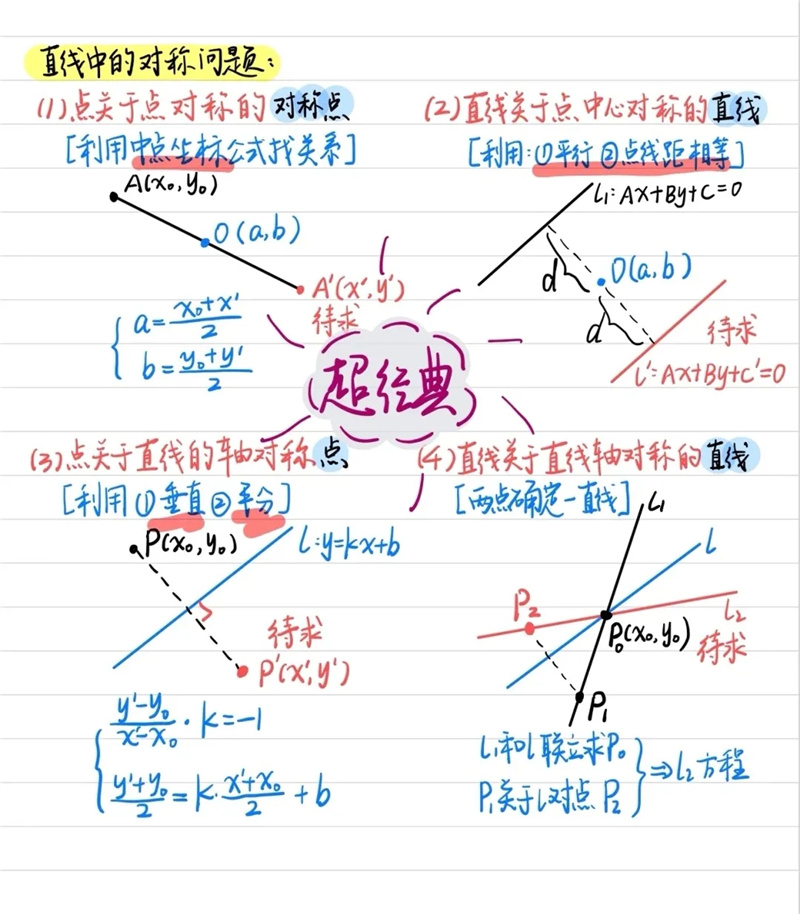 直线中的对称问题：
(1)点关于点对称的对称点
[利用中点坐标公式找关系]
A(x₀,y₀)
O(a,b)
A'(x',y')
待求
a=(x₀+x')/2
b=(y₀+y')/2
(2)直线关于点中心对称的直线
[利用:①平行②点线距相等]
L₁:Ax+By+C=0
d
O(a,b)
d
待求
L':Ax+By+C'=0
超经典
(3)点关于直线的轴对称点
[利用①垂直②平分]
P(x₀,y₀)
L:y=kx+b
待求
P'(x',y')
(y'-y₀)/(x'-x₀)·k=-1
(y'+y₀)/2=k·(x'+x₀)/2+b
(4)直线关于直线轴对称的直线
[两点确定一直线]
L₁
L
P₂
L₂
P₀(x₀,y₀)
待求
P₁
L₁和L联立求P₀
P₁关于L对点P₂
⇒L₂方程